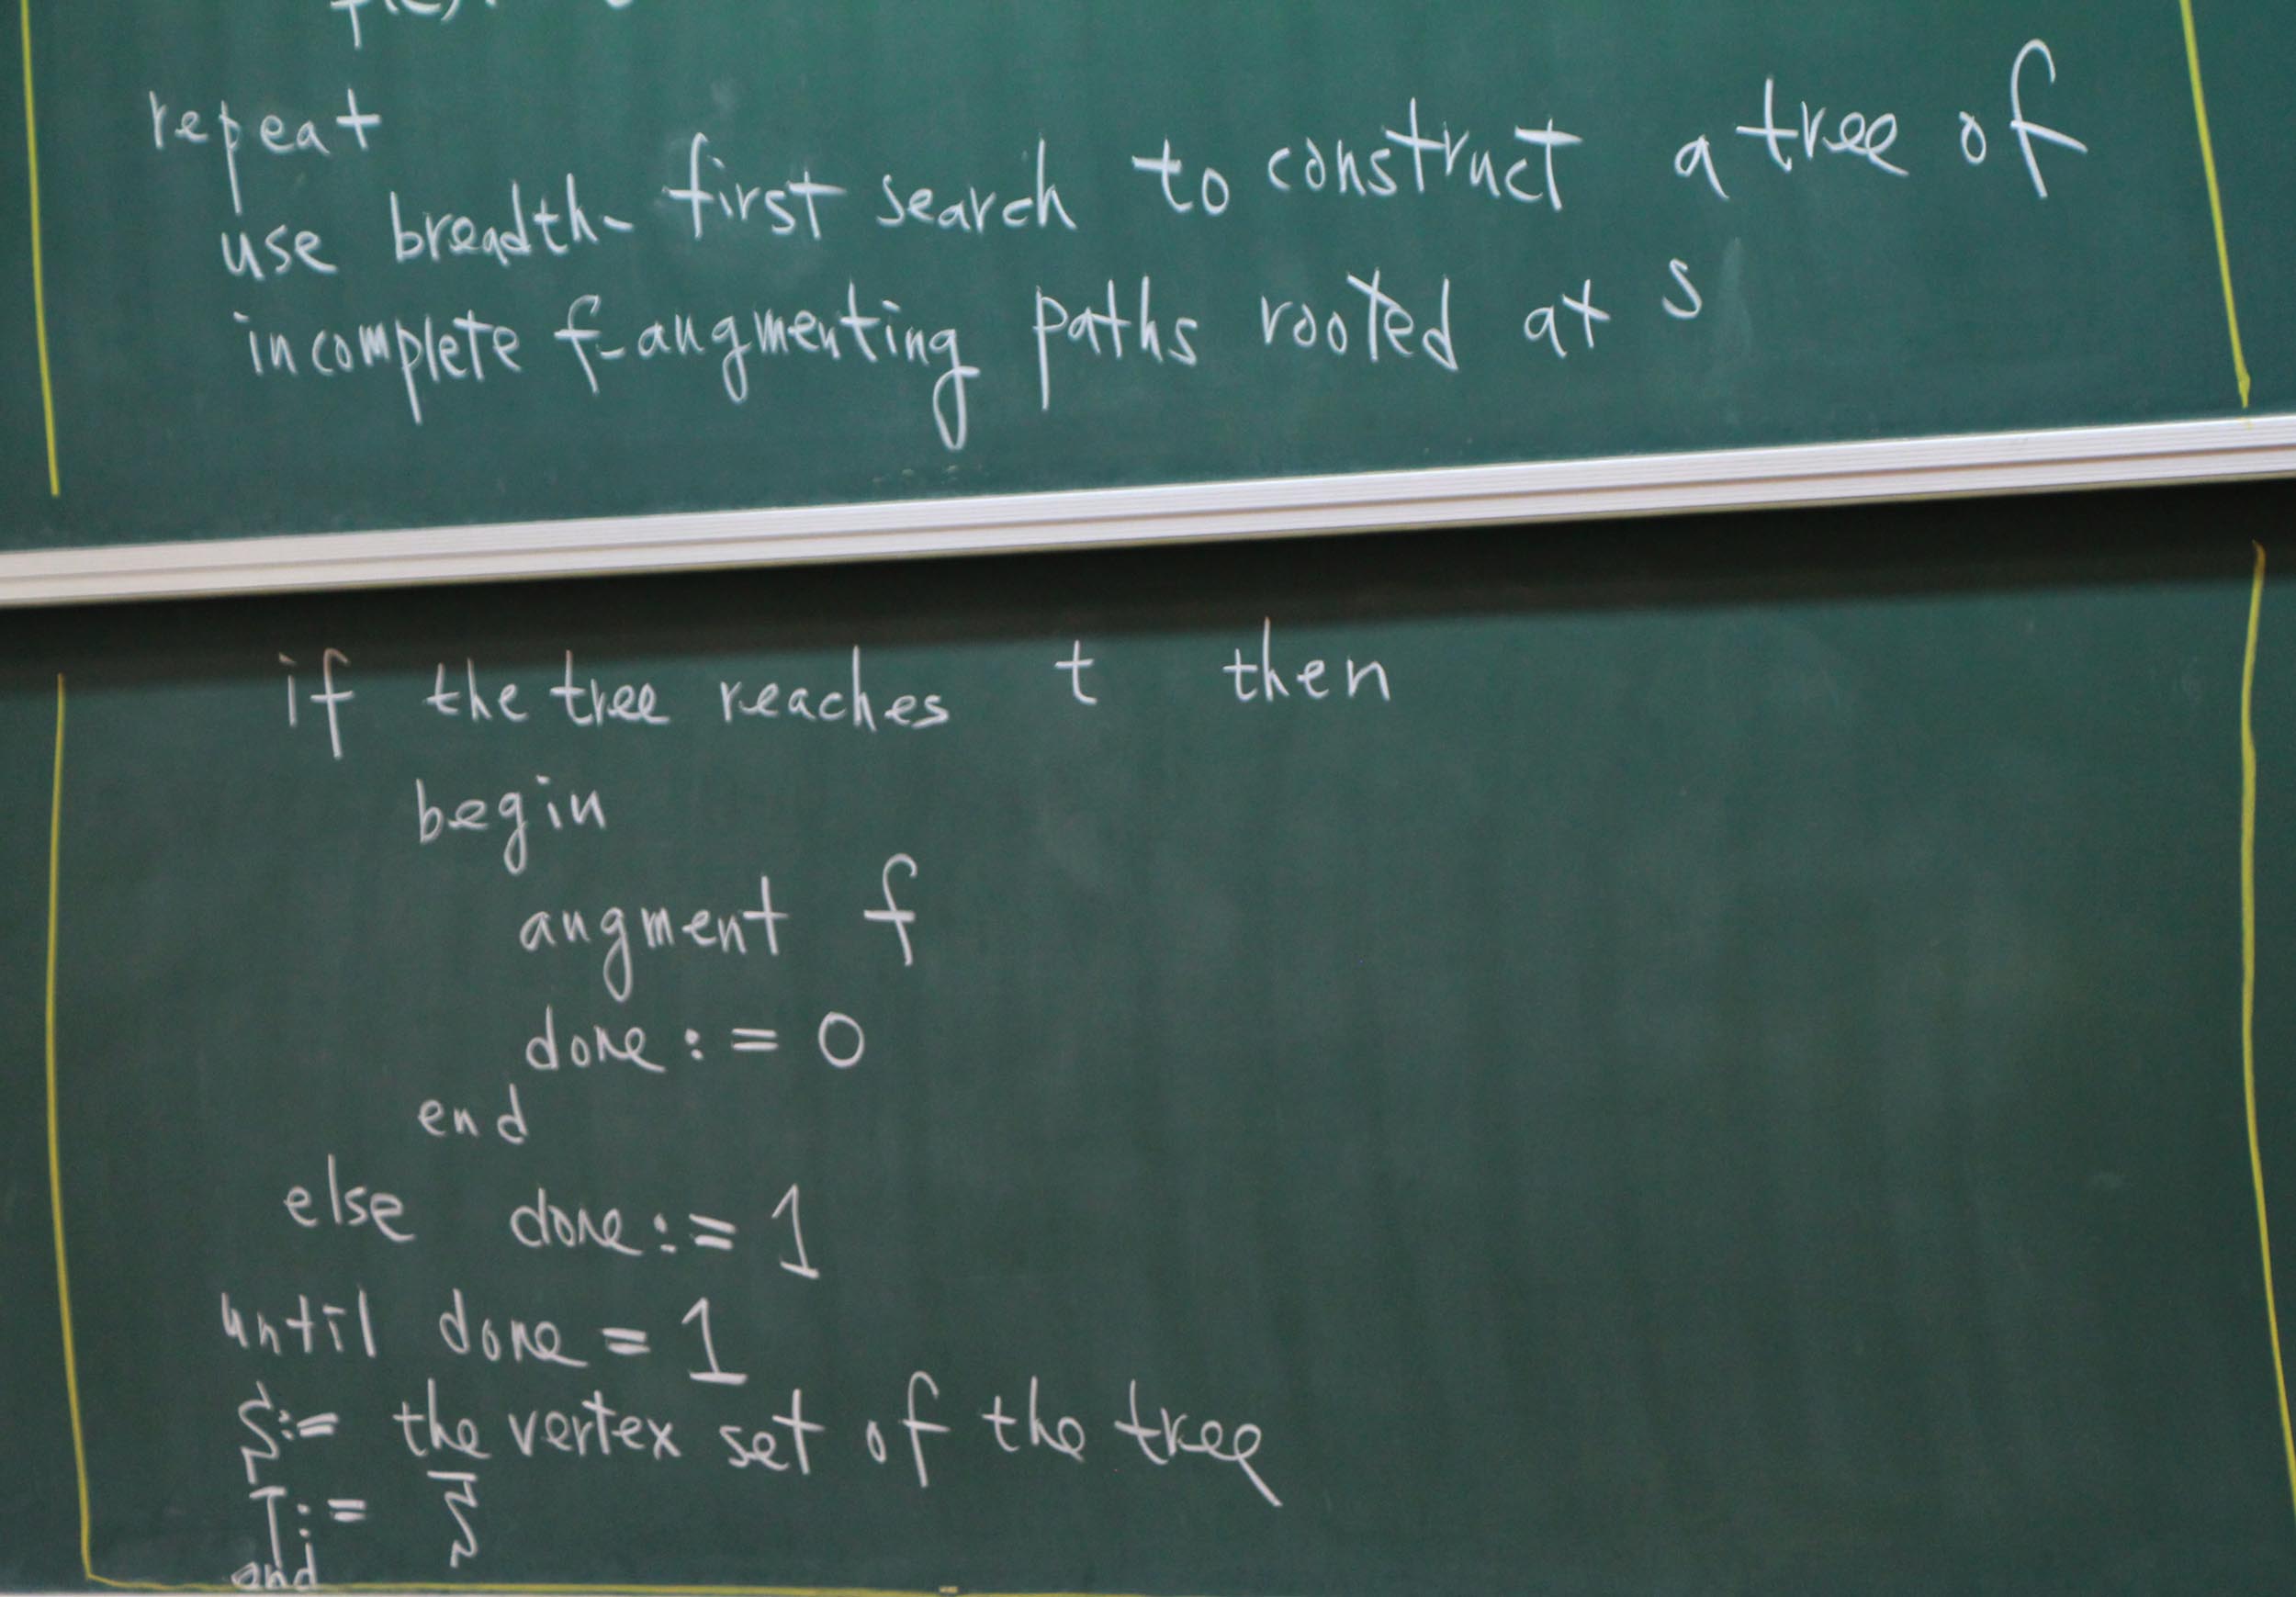 repeat
use breadth-first search to construct a tree of
incomplete f-augmenting paths rooted at s
if the tree reaches t then
begin
augment f
done := 0
end
else done := 1
until done = 1
S := the vertex set of the tree
T := S̅
end